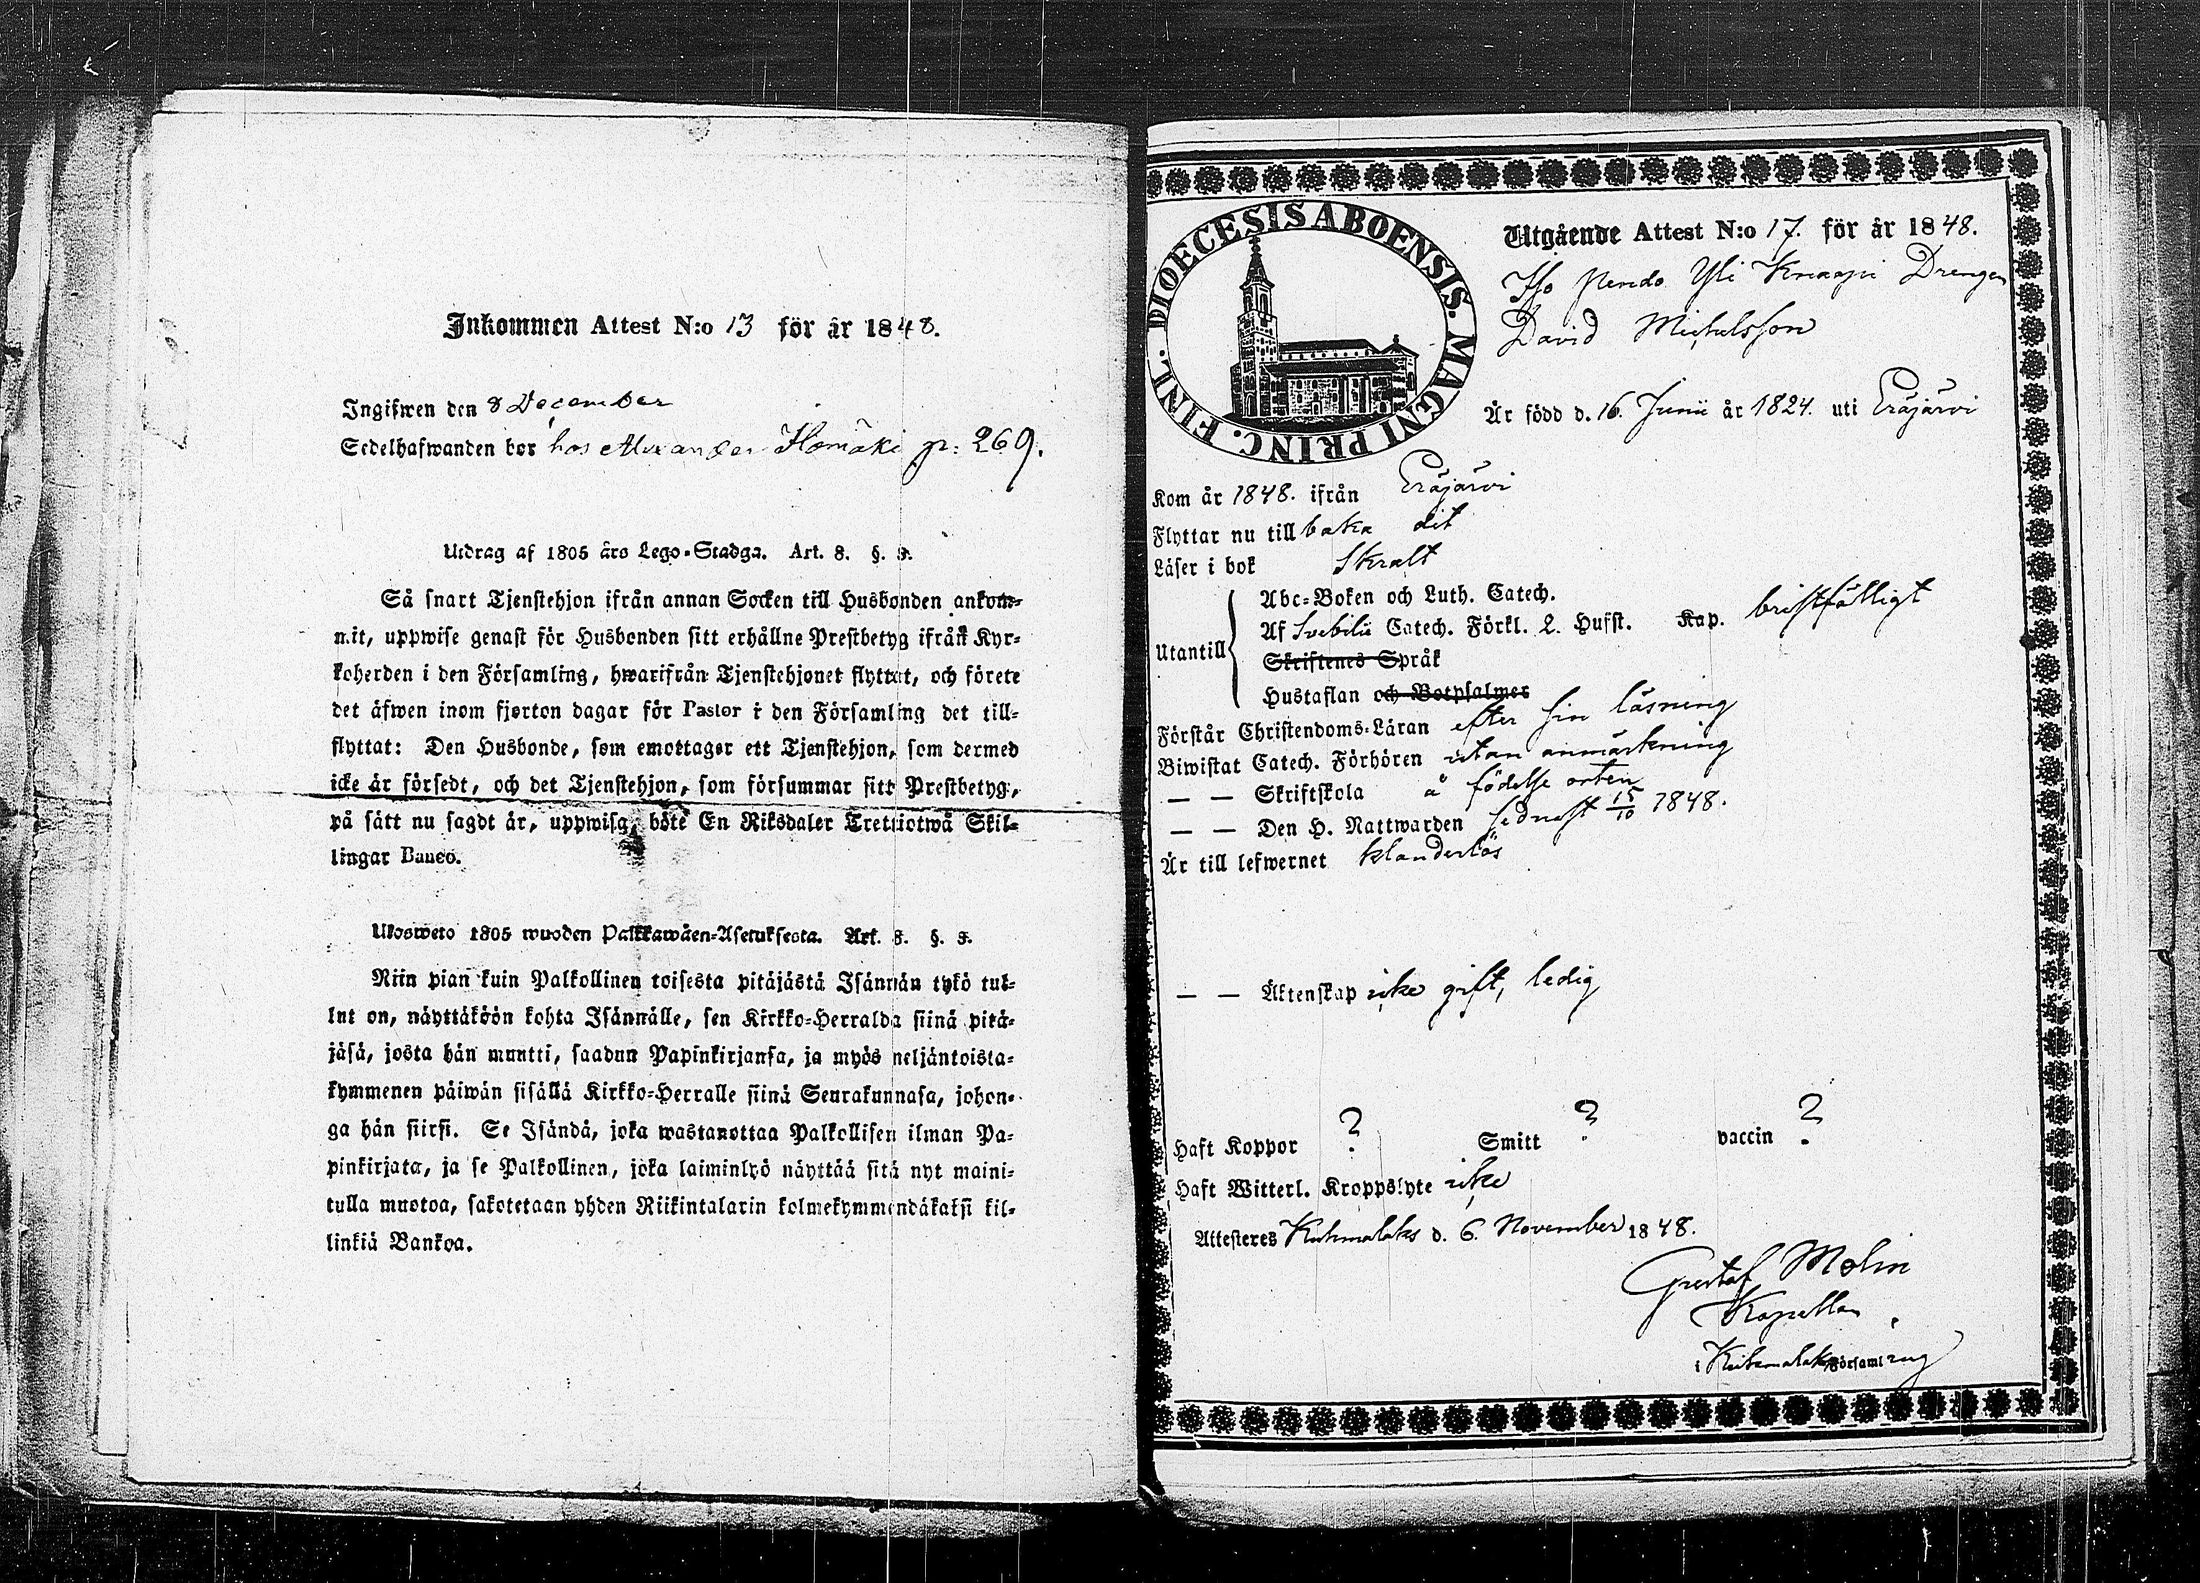 Inkommen Attest N:o 13 för år 1848.
Ingifwen den 8 December
Sedelhafwanden bor hos Alexander Homäki p: 269.
Utdrag af 1805 års Lego-Stadga. Art. 8. §. 3.
Så snart Tjenstehjon ifrån annan Socken till Husbonden ankom-
mit, uppwise genast för Husbonden sitt erhållne Prestbetyg ifrån Kyr-
koherden i den Församling, hwarifrån Tjenstehjonet flyttat, och förete
det äfwen inom fjorton dagar för Pastor i den Församling det till-
flyttat: Den Husbonde, som emottager ett Tjenstehjon, som dermed
icke är försedt, och det Tjenstehjon, som försummar sitt Prestbetyg,
på sätt nu sagdt är, uppwisa, böte En Riksdaler Trettiotwå Skil-
lingar Banco.
Ulosweto 1805 wuoden Palkkawäen-Asetuksesta. Art. 8. §. 3.
Niin pian kuin Palkollinen toisesta pitäjästä Isännän tykö tul-
lut on, näyttäköön kohta Isännälle, sen Kirkko-Herralda siinä pitä-
jäsä, josta hän muutti, saadun Papinkirjansa, ja myös neljäntoista-
kymmenen päiwän sisällä Kirkko-Herralle siinä Seurakunnasa, johon-
ga hän siirsi. Se Isändä, joka wastanottaa Palkollisen ilman Pa-
pinkirjata, ja se Palkollinen, joka laiminlyö näyttää sitä nyt maini-
tulla muotoa, sakotetaan yhden Riikintalarin kolmekymmendäkaksi kil-
linkiä Bankoa.
DIOECESIS ABOENSIS. MAGNI PRINC. FINL.
Utgående Attest N:o 17. för år 1848.
Iso Pendo Yli Knaapi Drengen
David Michelsson
Är född d. 16. Junii år 1824. uti Eräjärvi
Kom år 1848. ifrån Eräjärvi
Flyttar nu till baka dit
Läser i bok Skralt
Utantill
Abc-Boken och Luth. Catech.
Af Svebilii Catech. Förkl. 2. Hufst. Kap. bristfälligt
Skriftenes Språk
Hustaflan och Botpsalmer
Förstår Christendoms-Läran efter sin läsning
Biwistat Catech. Förhören utan anmärkning
— — Skriftskola å födelse orten
— — Den H. Nattwarden sednast 15/10 1848.
Är till lefwernet klanderlös
— — Äktenskap icke gift, ledig
Haft Koppor ? Smitt ? vaccin ?
Haft Witterl. Kroppslyte icke
Attesteras Kuhmalaks d. 6. November 1848.
Gustaf Molin
Kapellan
i Kuhmalaks Församling